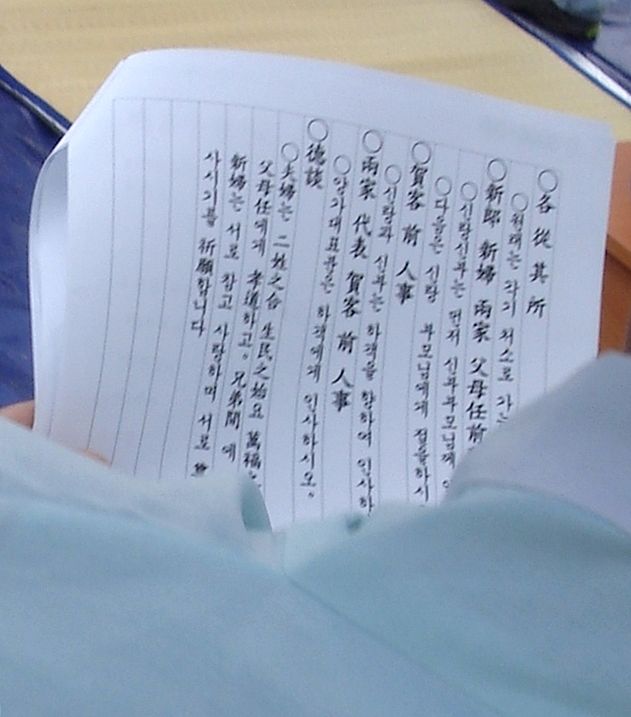 ○各從其所
○원래는 각기 처소로 가는
○新郞 新婦 兩家 父母任前
○신랑신부는 먼저 신부부모님에
○다음은 신랑 부모님에게 절을하시
○賀客 前 人事
○신랑과 신부는 하객을 향하여 인사하
○兩家 代表 賀客 前 人事
○양가대표분은 하객에게 인사하시오。
○德談
○夫婦는 二姓之合 生民之始요 萬福
父母任에게 孝道하고。兄弟間 에
新婦는 서로 참고 사랑하며 서로
사시기를 祈願합니다